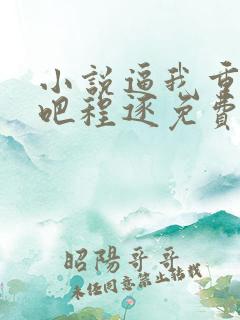 小說逼我重
吧程逐免費
昭陽哥哥
未经同意禁止转载